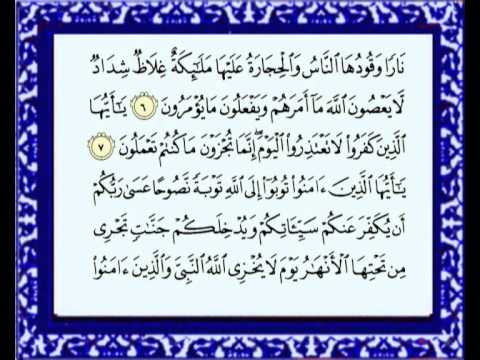 نَارًا وَقُودُهَا ٱلنَّاسُ وَٱلْحِجَارَةُ عَلَيْهَا مَلَٰٓئِكَةٌ غِلَاظٌ شِدَادٌ
لَّا يَعْصُونَ ٱللَّهَ مَآ أَمَرَهُمْ وَيَفْعَلُونَ مَا يُؤْمَرُونَ ٦ يَٰٓأَيُّهَا
ٱلَّذِينَ كَفَرُوا۟ لَا تَعْتَذِرُوا۟ ٱلْيَوْمَ ۖ إِنَّمَا تُجْزَوْنَ مَا كُنتُمْ تَعْمَلُونَ ٧
يَٰٓأَيُّهَا ٱلَّذِينَ ءَامَنُوا۟ تُوبُوٓا۟ إِلَى ٱللَّهِ تَوْبَةً نَّصُوحًا عَسَىٰ رَبُّكُمْ
أَن يُكَفِّرَ عَنكُمْ سَيِّـَٔاتِكُمْ وَيُدْخِلَكُمْ جَنَّٰتٍ تَجْرِى
مِن تَحْتِهَا ٱلْأَنْهَٰرُ يَوْمَ لَا يُخْزِى ٱللَّهُ ٱلنَّبِىَّ وَٱلَّذِينَ ءَامَنُوا۟